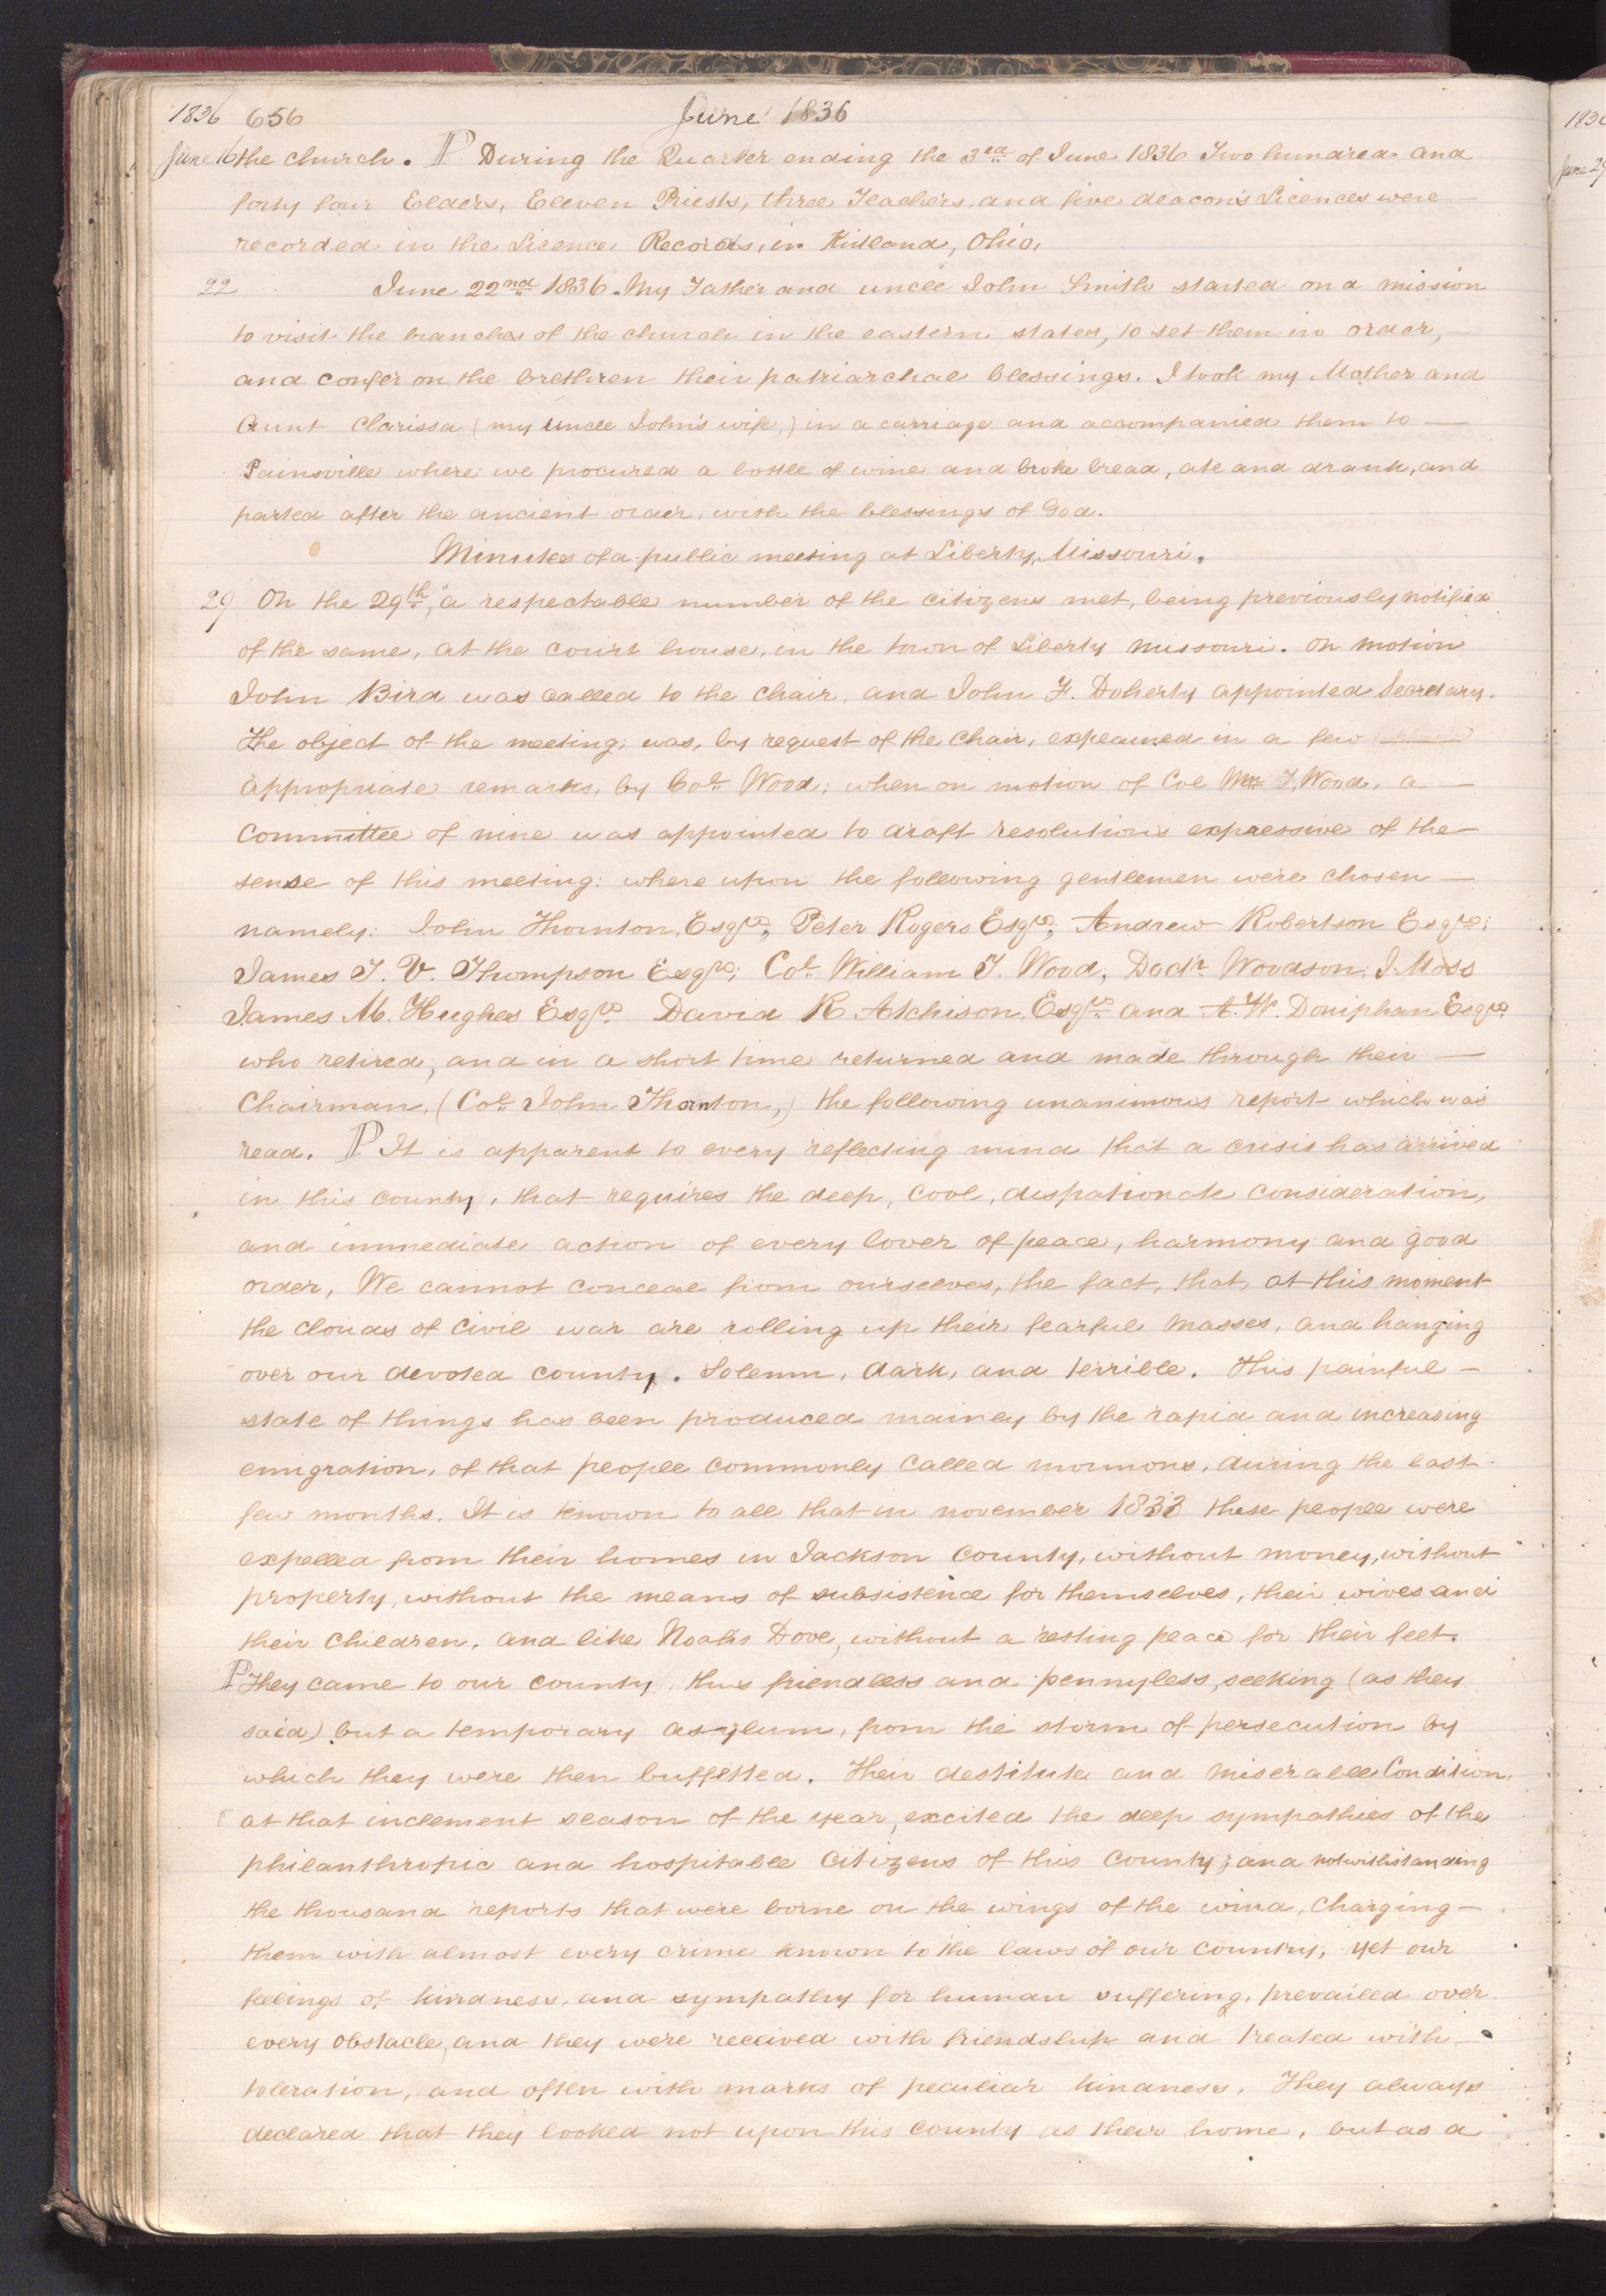 1836 656 June 1836
June 16 the church. P During the Quarter ending the 3rd of June 1836 Two hundred and
forty four Elders, Eleven Priests, three Teachers, and five deacon's Licences were—
recorded in the Licence Records, in Kirtland, Ohio,
22 June 22nd 1836. My Father and uncle John Smith started on a mission
to visit the branches of the church in the eastern states, to set them in order,—
and confer on the brethren their patriarchal blessings. I took my Mother and
Aunt Clarissa (my uncle John's wife,) in a carriage and accompanied them to —
Painsville where we procured a bottle of wine and broke bread, ate and drank, and
parted after the ancient order, with the blessings of God.
Minutes of a public meeting at Liberty, Missouri.
29 On the 29th, "a respectable number of the citizens met, being previously notified
of the same, at the court house, in the town of Liberty Missouri. On motion
John Bird was called to the chair, and John F. Doherty appointed Secretary.
The object of the meeting, was, by request of the Chair, explained in a few
appropriate remarks, by Col. Wood; when on motion of Col Wm T. Wood, a —
Committee of nine was appointed to draft resolutions expressive of the—
sense of this meeting: where upon the following gentlemen were chosen —
namely: John Thornton, Esqre; Peter Rogers Esqre; Andrew Robertson Esqre;
James T. V. Thompson Esqre; Col. William T. Wood, Doctr Woodson J. Moss
James M. Hughes Esqre. David R Atchison, Esqre. and A. W. Doniphan Esqre.
who retired, and in a short time returned and made through their —
Chairman, (Col. John Thornton,) the following unanimous report which was
read. P It is apparent to every reflecting mind that a crisis has arrived
in this county, that requires the deep, cool, dispationate consideration,
and immediate action of every lover of peace, harmony and good
order, We cannot conceal from ourselves, the fact, that, at this moment
the clouds of civil war are rolling up their fearful masses, and hanging
over our devoted county. Solemn, dark, and terrible. This painful —
state of things has been produced mainly by the rapid and increasing
emigration, of that people commonly called mormons, during the last
few months. It is known to all that in november 1833 these people were
expelled from their homes in Jackson County, without money, without
property, without the means of subsistence for themselves, their wives and
their children, and like Noah's Dove, without a resting place for their feet.
P They came to our county, thus friendless and pennyless, seeking (as they
said) but a temporary asylum, from the storm of persecution by
which they were then buffetted. Their destitute and miserable Condition,
at that inclement season of the year, excited the deep sympathies of the
philanthropic and hospitable Citizens of this County; and notwithstanding
the thousand reports that were borne on the wings of the wind, Charging —
them with almost every crime known to the laws of our country, yet our
feelings of kindness, and sympathy for human suffering, prevailed over
every obstacle, and they were received with friendship and treated with—
toleration, and often with marks of peculiar kindness. They always
declared that they looked not upon this County as their home, but as a
June 29